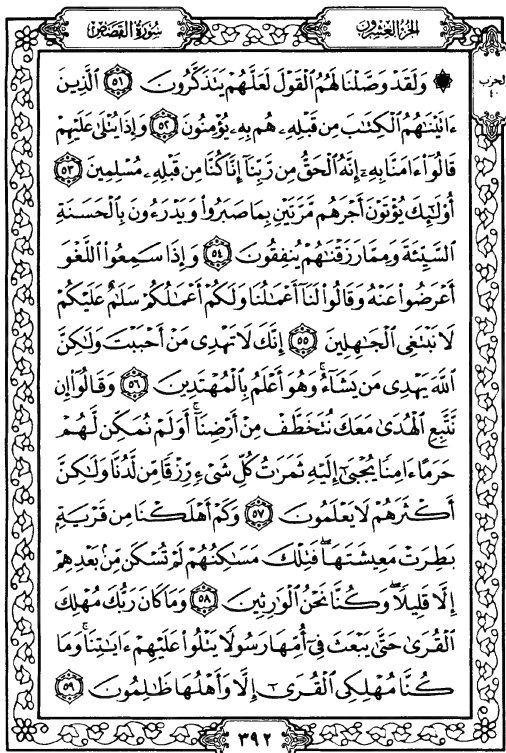 سُورَةُ القَصَصِ
الجُزْءُ العِشْرُونَ
الحزب
٤٠
۞ وَلَقَدْ وَصَّلْنَا لَهُمُ ٱلْقَوْلَ لَعَلَّهُمْ يَتَذَكَّرُونَ ٥١ ٱلَّذِينَ
ءَاتَيْنَٰهُمُ ٱلْكِتَٰبَ مِن قَبْلِهِۦ هُم بِهِۦ يُؤْمِنُونَ ٥٢ وَإِذَا يُتْلَىٰ عَلَيْهِمْ
قَالُوٓا۟ ءَامَنَّا بِهِۦٓ إِنَّهُ ٱلْحَقُّ مِن رَّبِّنَآ إِنَّا كُنَّا مِن قَبْلِهِۦ مُسْلِمِينَ ٥٣
أُو۟لَٰٓئِكَ يُؤْتَوْنَ أَجْرَهُم مَّرَّتَيْنِ بِمَا صَبَرُوا۟ وَيَدْرَءُونَ بِٱلْحَسَنَةِ
ٱلسَّيِّئَةَ وَمِمَّا رَزَقْنَٰهُمْ يُنفِقُونَ ٥٤ وَإِذَا سَمِعُوا۟ ٱللَّغْوَ
أَعْرَضُوا۟ عَنْهُ وَقَالُوا۟ لَنَآ أَعْمَٰلُنَا وَلَكُمْ أَعْمَٰلُكُمْ سَلَٰمٌ عَلَيْكُمْ
لَا نَبْتَغِى ٱلْجَٰهِلِينَ ٥٥ إِنَّكَ لَا تَهْدِى مَنْ أَحْبَبْتَ وَلَٰكِنَّ
ٱللَّهَ يَهْدِى مَن يَشَآءُ ۚ وَهُوَ أَعْلَمُ بِٱلْمُهْتَدِينَ ٥٦ وَقَالُوٓا۟ إِن
نَّتَّبِعِ ٱلْهُدَىٰ مَعَكَ نُتَخَطَّفْ مِنْ أَرْضِنَآ ۚ أَوَلَمْ نُمَكِّن لَّهُمْ
حَرَمًا ءَامِنًا يُجْبَىٰٓ إِلَيْهِ ثَمَرَٰتُ كُلِّ شَىْءٍ رِّزْقًا مِّن لَّدُنَّا وَلَٰكِنَّ
أَكْثَرَهُمْ لَا يَعْلَمُونَ ٥٧ وَكَمْ أَهْلَكْنَا مِن قَرْيَةٍۭ
بَطِرَتْ مَعِيشَتَهَا ۖ فَتِلْكَ مَسَٰكِنُهُمْ لَمْ تُسْكَن مِّنۢ بَعْدِهِمْ
إِلَّا قَلِيلًا ۖ وَكُنَّا نَحْنُ ٱلْوَٰرِثِينَ ٥٨ وَمَا كَانَ رَبُّكَ مُهْلِكَ
ٱلْقُرَىٰ حَتَّىٰ يَبْعَثَ فِىٓ أُمِّهَا رَسُولًا يَتْلُوا۟ عَلَيْهِمْ ءَايَٰتِنَا ۚ وَمَا
كُنَّا مُهْلِكِى ٱلْقُرَىٰٓ إِلَّا وَأَهْلُهَا ظَٰلِمُونَ ٥٩
٣٩٢